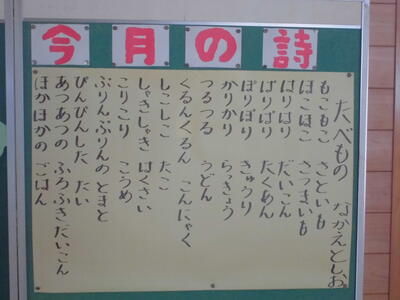 今月の詩
たべもの なかえとしお
もこもこ さといも
ほこほこ さつまいも
はりはり だいこん
ぱりぱり たくあん
ぽりぽり きゅうり
かりかり らっきょう
つるつる うどん
くるんくるん こんにゃく
しこしこ たこ
しゃきしゃき はくさい
こりこり こうめ
ぷりんぷりんの とまと
ぴんぴんした たい
あつあつの ふろふきだいこん
ほかほかの ごはん